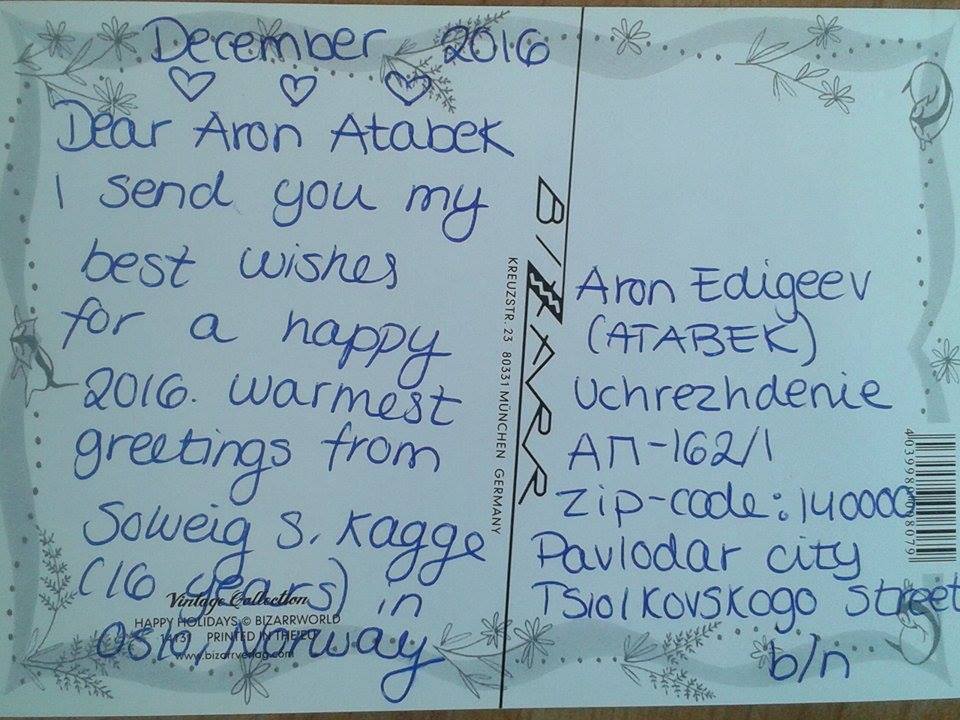 December 2016
Dear Aron Atabek
I send you my
best wishes
for a happy
2016. Warmest
greetings from
Solveig S. Kagge
(16 years) in
Oslo, Norway
Vintage Collection
HAPPY HOLIDAYS © BIZARRWORLD
PRINTED IN THE EU
www.bizarrverlag.com
BIZARR
KREUZSTR. 23 80331 MÜNCHEN GERMANY
Aron Edigeev
(ATABEK)
Uchrezhdenie
АП-162/1
Zip-code: 140000
Pavlodar city
Tsiolkovskogo street
b/n